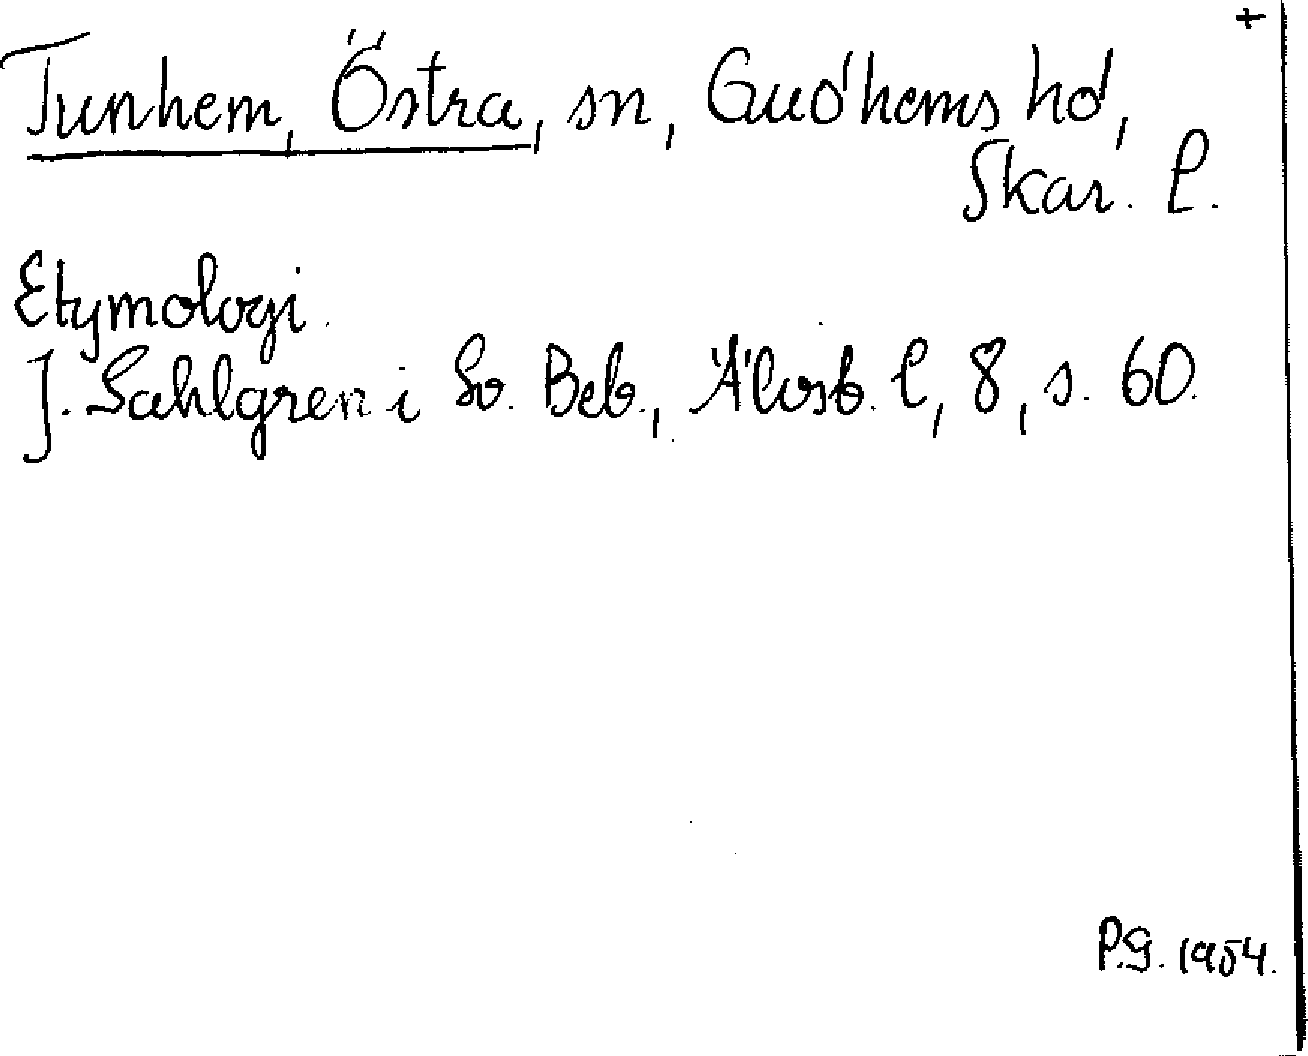 +
Tunhem, Östra, sn, Gudhems hd,
Skar. l.
Etymologi.
J. Sahlgren i Sv. Beb., Älvsb. l, 8, s. 60.
P.G. 1954.